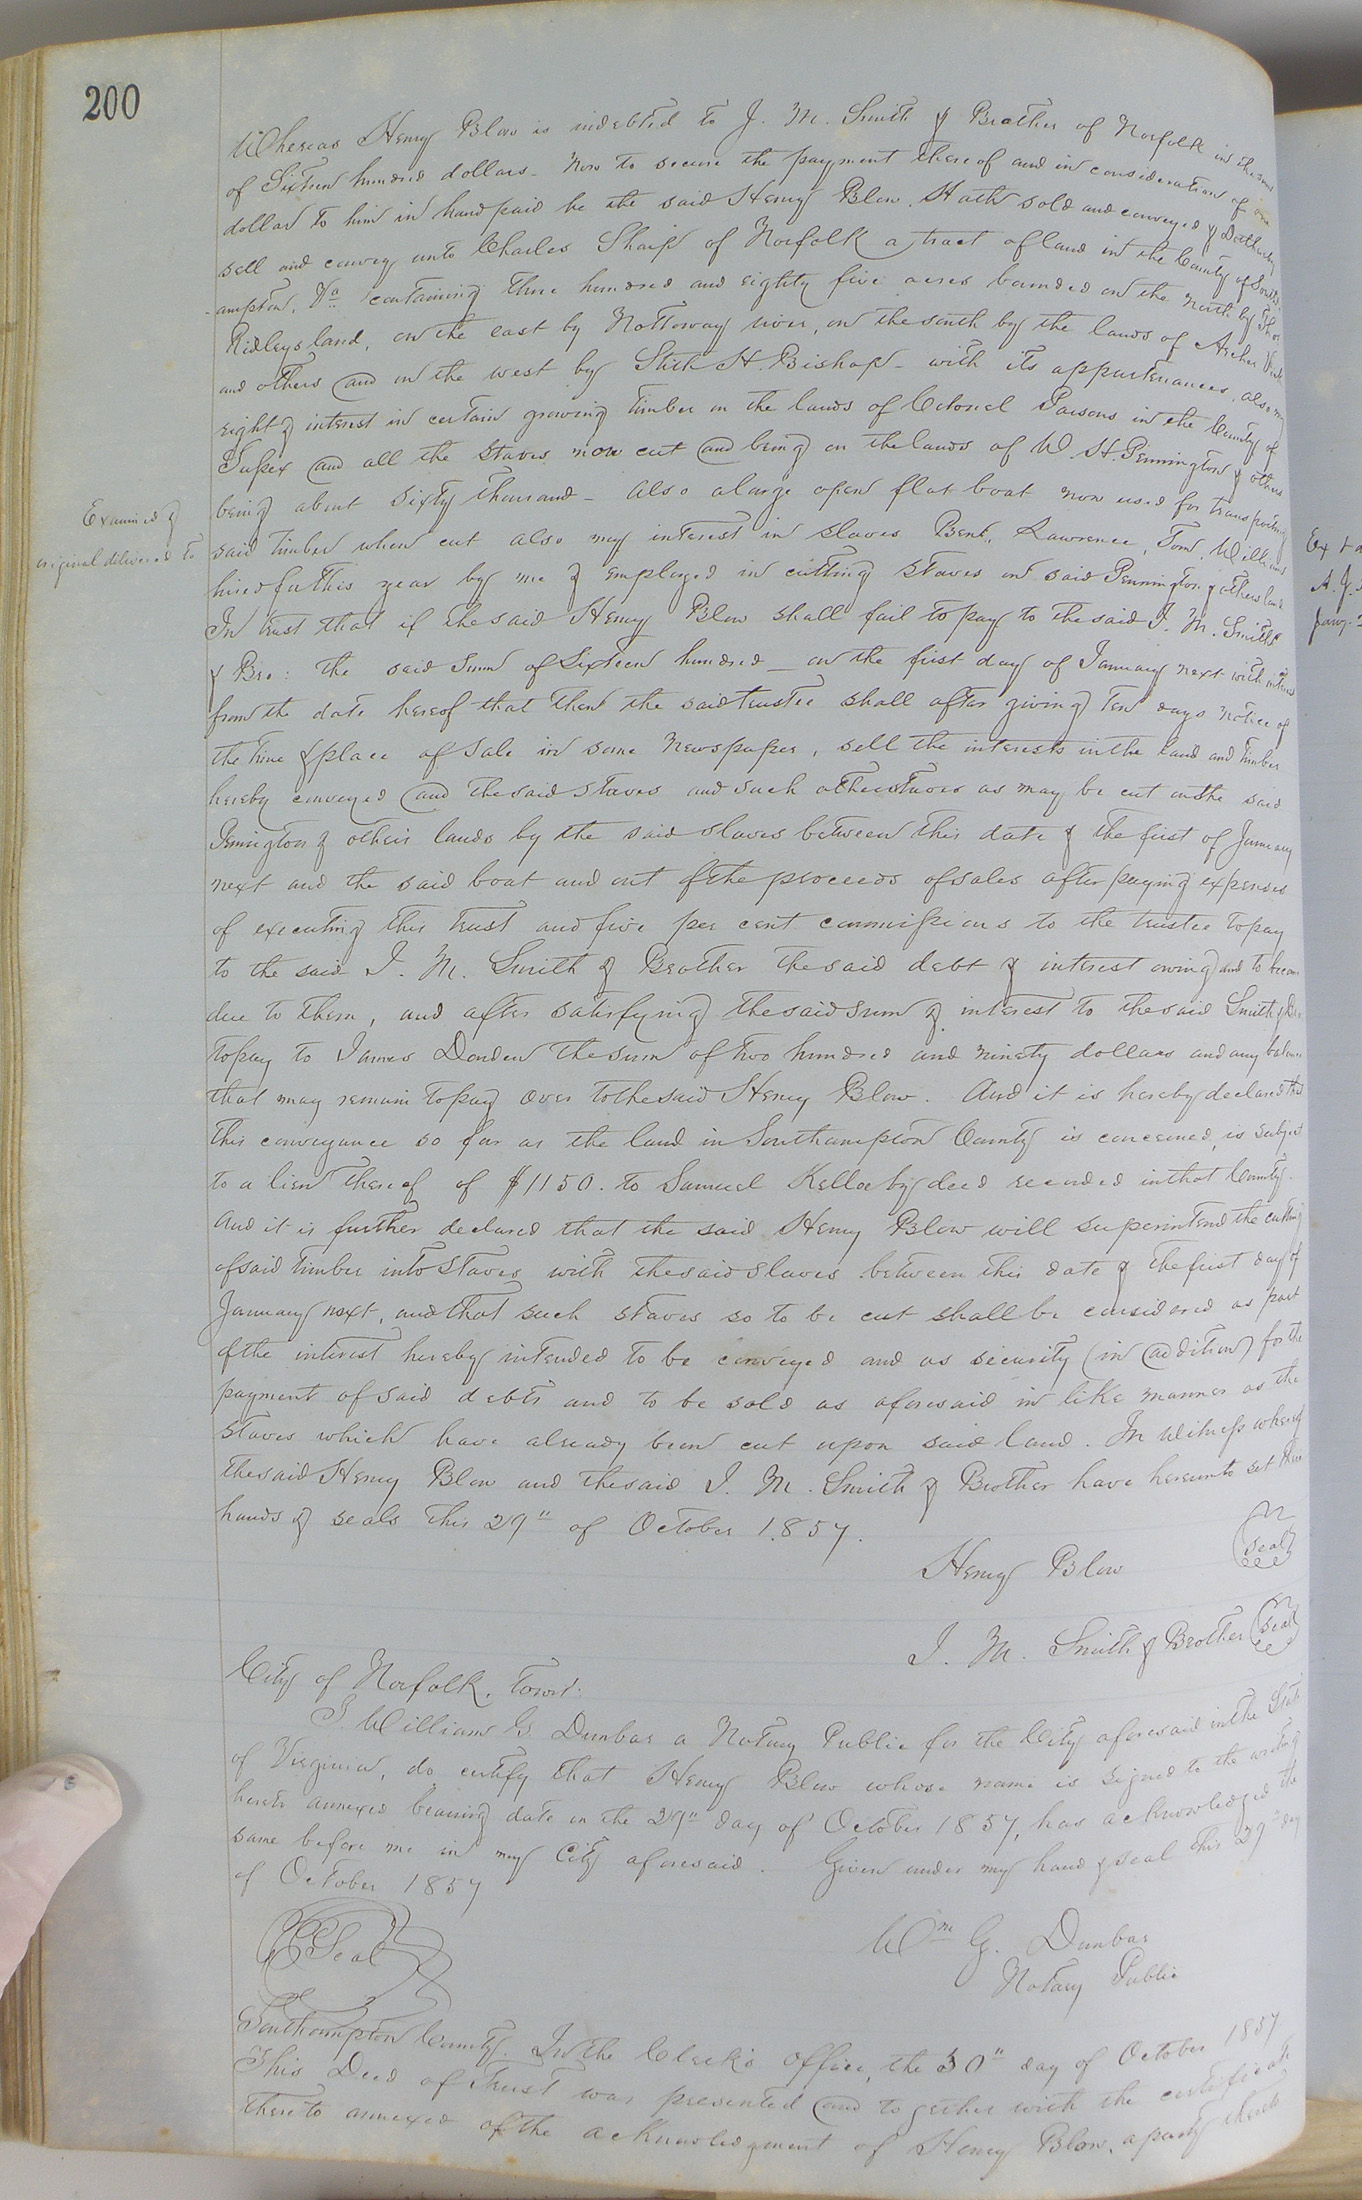 200
Whereas Henry Blow is indebted to J. M. Smith & Brother of Norfolk in the sum
of Sixteen hundred dollars. Now to secure the payment thereof and in consideration of one
dollar to him in hand paid he the said Henry Blow, Hath sold and conveyed & Doth hereby
sell and convey unto Charles Sharp of Norfolk a tract of land in the County of South-
-ampton, Va containing three hundred and eighty five acres bounded on the north by Thos
Ridleys land, on the east by Nottoway river, on the south by the lands of Archer
and others and on the west by Stith H. Bishop - with its appurtenances, also my
right & interest in certain growing timber on the lands of Colonel Parsons in the County of
Sussex and all the staves now cut and being on the lands of W. H. Pennington & others
being about sixty thousand - also a large open flat boat now used for transporting
said timber when cut also my interest in slaves Benk, Lawrence, Tom, William
hired for this year by me & employed in cutting staves on said Pennington & others land
In trust that if the said Henry Blow shall fail to pay to the said J. M. Smith
& Bro: the said Sum of Sixteen hundred _ on the first day of January next with interest
from the date hereof that then the said trustee shall after giving ten days notice of
the time & place of Sale in some Newspaper, sell the interests in the land and timber
hereby conveyed and the said staves and such other staves as may be cut on the said
Pennington & others lands by the said slaves between this date & the first of January
next and the said boat and out of the proceeds of sales after paying expenses
of executing this trust and five per cent commissions to the trustee to pay
to the said J. M. Smith & Brother the said debt & interest owing and to become
due to them, and after satisfying the said sum & interest to the said Smith & Bro.
to pay to James Darden the sum of two hundred and ninety dollars and any balance
that may remain to pay over to the said Henry Blow. And it is hereby declared that
this conveyance so far as the land in Southampton County is concerned, is subject
to a lien thereof of $1150. to Samuel Kello by deed recorded in that County.
And it is further declared that the said Henry Blow will superintend the cutting
of said timber into staves with the said slaves between this date & the first day of
January next, and that such staves so to be cut shall be considered as part
of the interest hereby intended to be conveyed and as security (in addition) for the
payment of said debts and to be sold as aforesaid in like manner as the
staves which have already been cut upon said land. In witness whereof
the said Henry Blow and the said J. M. Smith & Brother have hereunto set their
hands & seals this 29" of October 1857.
Henry Blow (seal)
J. M. Smith & Brother (seal)
Examined &
original delivered to
City of Norfolk, towit:
I William G Dunbar a Notary Public for the City aforesaid in the State
of Virginia, do certify that Henry Blow whose name is signed to the writing
hereto annexed bearing date on the 29" day of October 1857, has acknowledged the
same before me in my City aforesaid. Given under my hand & seal this 29" day
of October 1857
Seal
Wm G. Dunbar
Notary Public
Southampton County. In the Clerk's office, the 30" day of October 1857
This Deed of Trust was presented and together with the certificate
thereto annexed of the acknowledgment of Henry Blow, a party thereto
Ex & d
A. J.